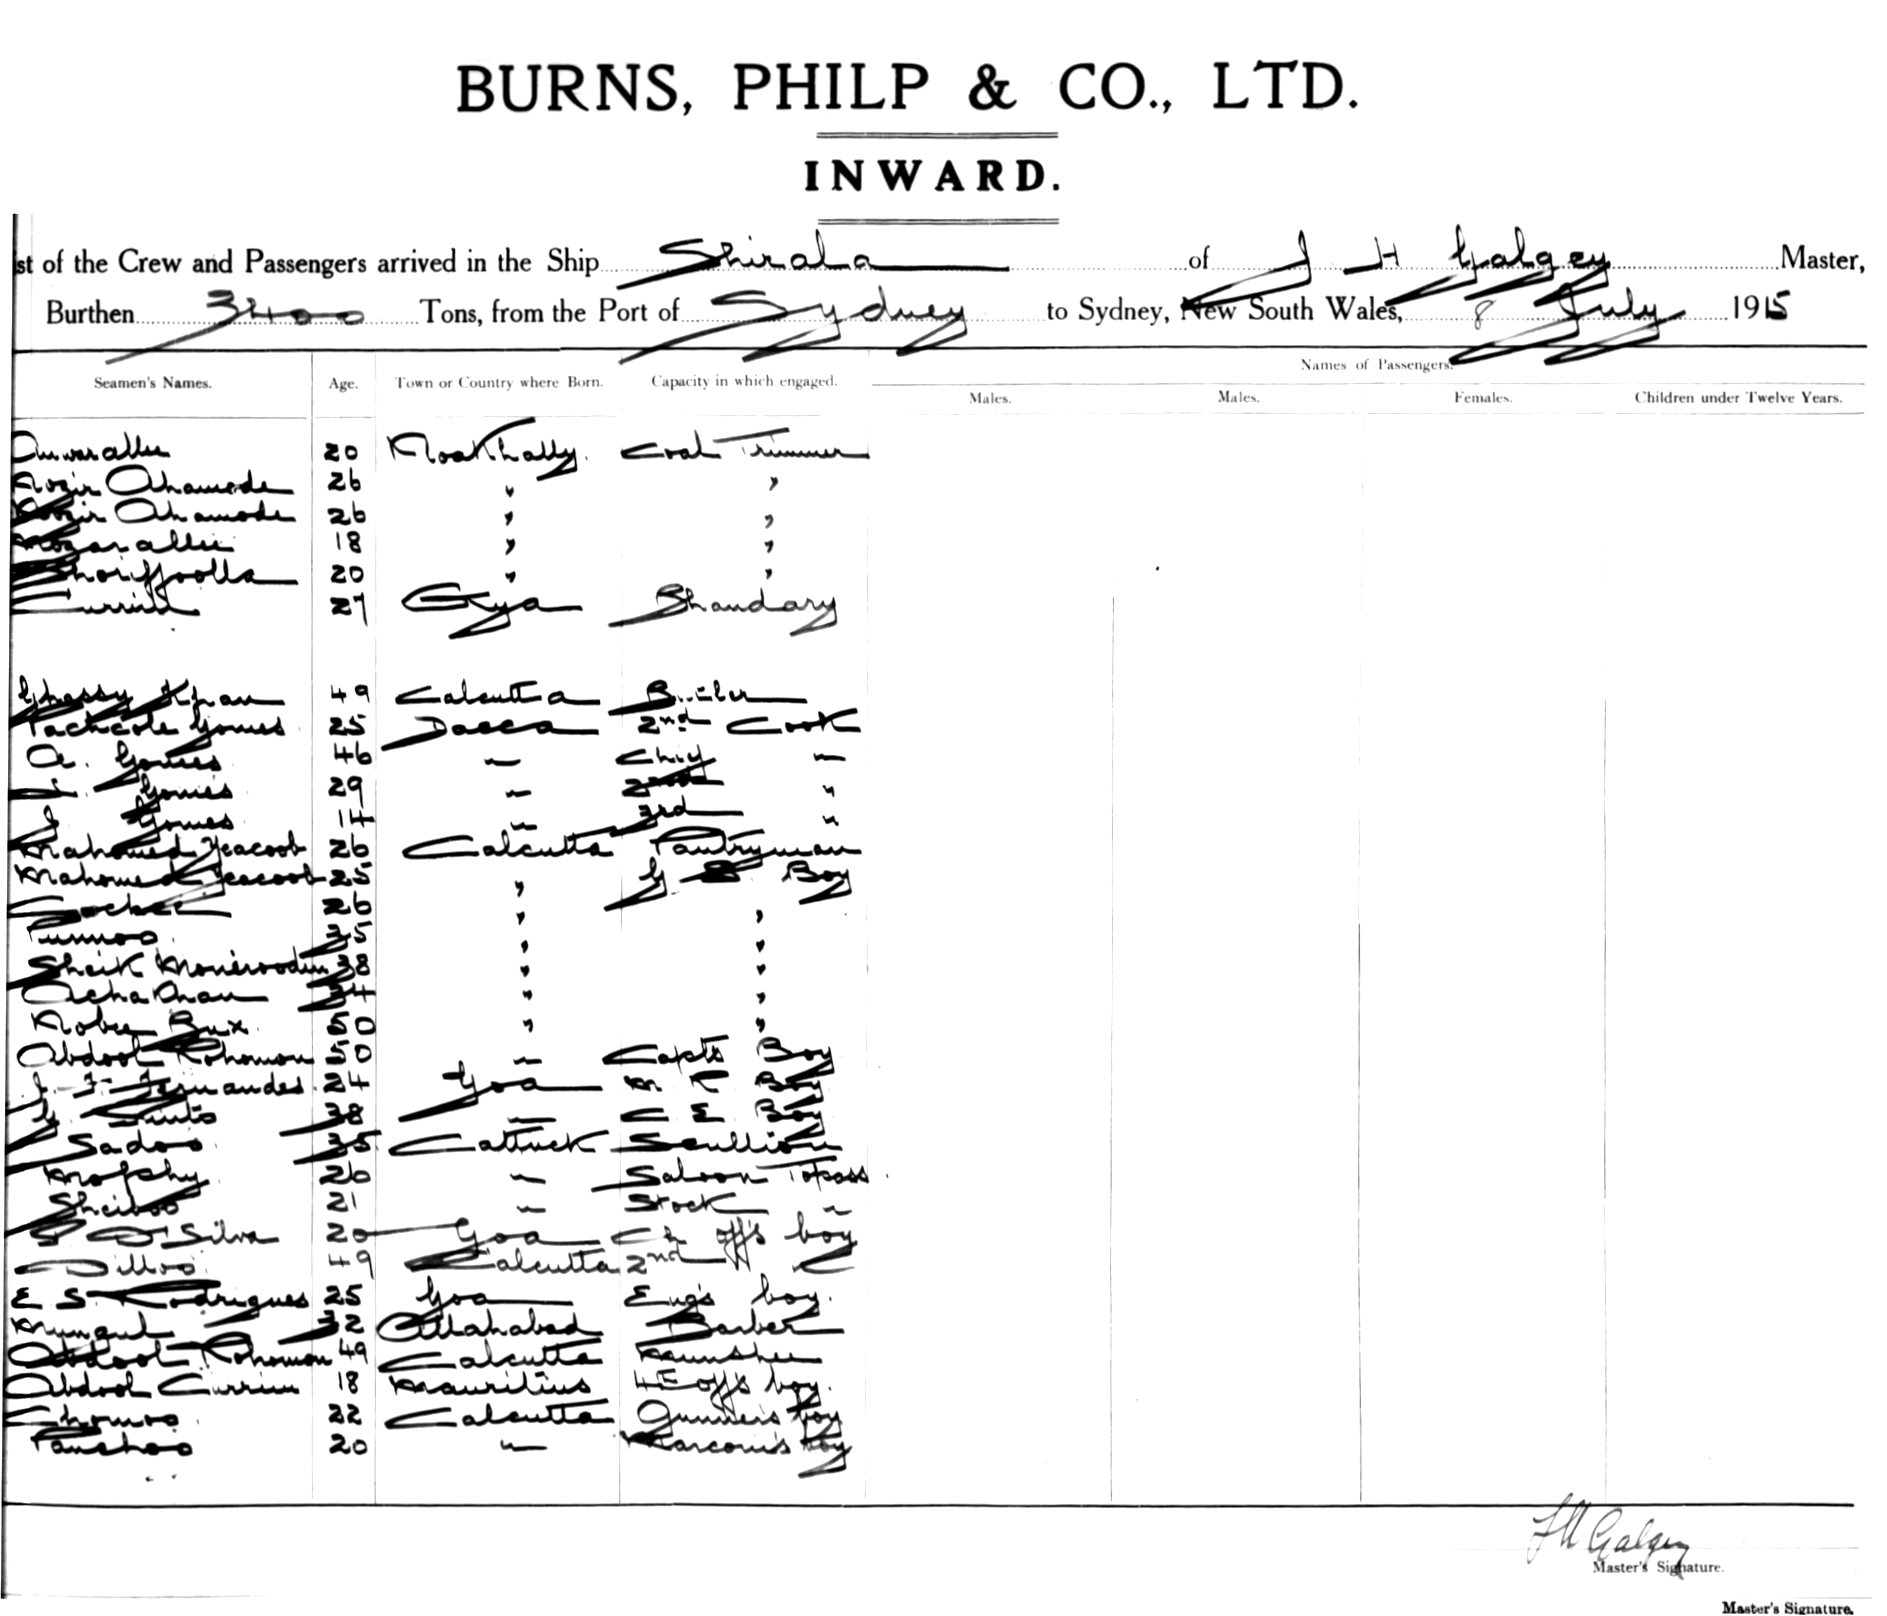 BURNS, PHILP & CO., LTD.
INWARD.
st of the Crew and Passengers arrived in the Ship Shirala of J H Galgey Master,
Burthen 3400 Tons, from the Port of Sydney to Sydney, New South Wales, 8 July 1915
Names of Passengers.
Seamen's Names. Age. Town or Country where Born. Capacity in which engaged. Males. Males. Females. Children under Twelve Years.
Anwarallee 20 Noakhally. Coal Trimmer
Nozir Ahamode 26 " "
Nozir Ahamode 26 " "
Mozarallee 18 " "
Shoriffoolla 20 " "
Currim 27 Gya Bhandary
Ghassy Khan 49 Calcutta Butler
Gomes 25 Dacca 2nd Cook
A. Gomes 46 " Chief "
Gomes 29 " 2nd "
J Gomes 14 " 3rd "
Mahomed Yeacoob 26 Calcutta Pantryman
Mahomed Yeacoob 25 " G S Boy
26 " "
Punnoo 35 " "
Sheik Monirooden 38 " "
Acha Khan 34 " "
Nobee Bux. 50 " "
Abdool Rohomon 50 " Capts Boy
J. F. Fernandes. 24 Goa M R Boy
38 " C E Boy
Sadoo 35 Cattuck Scullion
26 " Saloon Topass
Sheiboo 21 " Stock "
S D'Silva 20 Goa Ch off's boy
Dilloo 49 Calcutta 2nd "
E S. Rodrigues 25 Goa Eng's boy.
Mungul 32 Allahabad Barber
Abdool Rohomon 49 Calcutta Munshee
Abdool Currim 18 Mauritius 4th off's boy.
Chomoo 22 Calcutta Gunner's boy
Panchoo 20 " Marconi's boy
J H Galgey
Master's Signature.
Master's Signature.